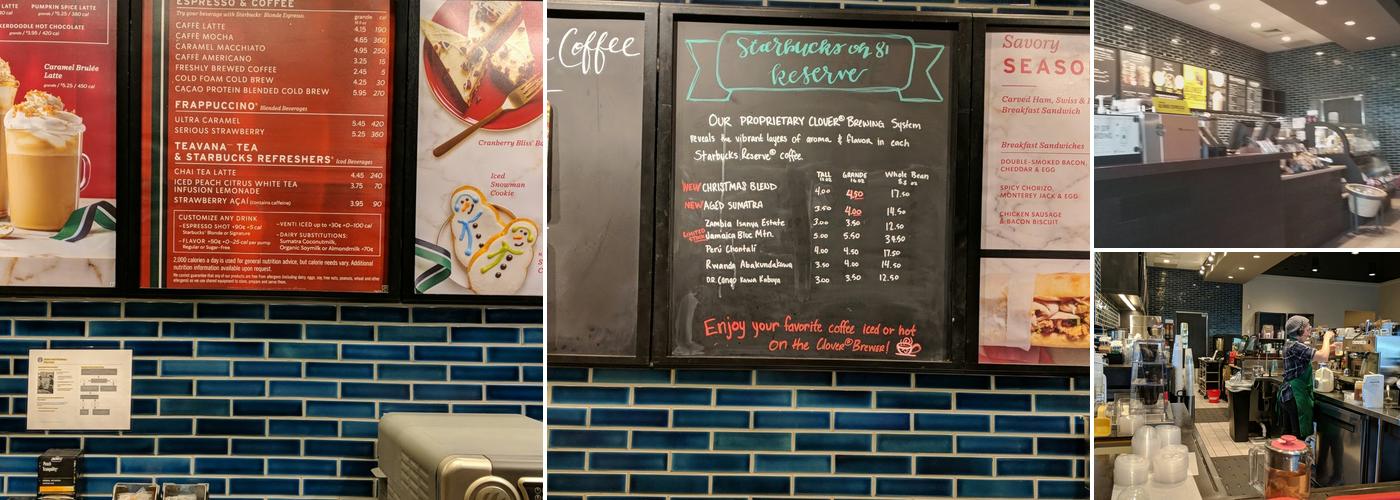 PUMPKIN SPICE LATTE
grande / $5.25 / 380 cal
KERDOODLE HOT CHOCOLATE
grande / $3.95 / 420 cal
Caramel Brulée
Latte
grande / $5.25 / 450 cal
ESPRESSO & COFFEE
Try your beverage with Starbucks® Blonde Espresso.
grande cal
CAFFÈ LATTE 4.15 190
CAFFÈ MOCHA 4.65 360
CARAMEL MACCHIATO 4.95 250
CAFFÈ AMERICANO 3.25 15
FRESHLY BREWED COFFEE 2.45 5
COLD FOAM COLD BREW 4.25 30
CACAO PROTEIN BLENDED COLD BREW 5.95 270
FRAPPUCCINO® Blended Beverages
ULTRA CARAMEL 5.45 420
SERIOUS STRAWBERRY 5.25 360
TEAVANA™ TEA
& STARBUCKS REFRESHERS® Iced Beverages
CHAI TEA LATTE 4.45 240
ICED PEACH CITRUS WHITE TEA 3.75 70
INFUSION LEMONADE
STRAWBERRY AÇAÍ (contains caffeine) 3.95 90
CUSTOMIZE ANY DRINK
- ESPRESSO SHOT +90¢ +5 cal
Starbucks® Blonde or Signature
- FLAVOR +50¢ +0–25 cal per pump
Regular or Sugar-Free
- VENTI ICED up to +30¢ +0–100 cal
- DAIRY SUBSTITUTIONS:
Sumatra Coconutmilk,
Organic Soymilk or Almondmilk +70¢
2,000 calories a day is used for general nutrition advice, but calorie needs vary. Additional
nutrition information available upon request.
Cranberry Bliss® Ba
Iced
Snowman
Cookie
Peach
Tranquility
Coffee
Starbucks on 81
Reserve
OUR PROPRIETARY CLOVER® BREWING System
reveals the vibrant layers of aroma & flavor in each
Starbucks Reserve® coffee.
TALL GRANDE Whole Bean
12 oz 16 oz 8.8 oz
NEW CHRISTMAS BLEND 4.00 4.50 17.50
NEW AGED SUMATRA 3.50 4.00 14.50
Zambia Isanya Estate 3.00 3.50 12.50
LIMITED Jamaica Blue Mtn. 5.00 5.50 39.50
Perú Chontalí 4.00 4.50 17.50
Rwanda Abakundakawa 3.50 4.00 14.50
D.R. Congo Kawa Kabuya 3.00 3.50 12.50
Enjoy your favorite coffee iced or hot
on the Clover® Brewer!
Savory
SEASO
Carved Ham, Swiss &
Breakfast Sandwich
Breakfast Sandwiches
DOUBLE-SMOKED BACON,
CHEDDAR & EGG
SPICY CHORIZO,
MONTEREY JACK & EGG
CHICKEN SAUSAGE
& BACON BISCUIT